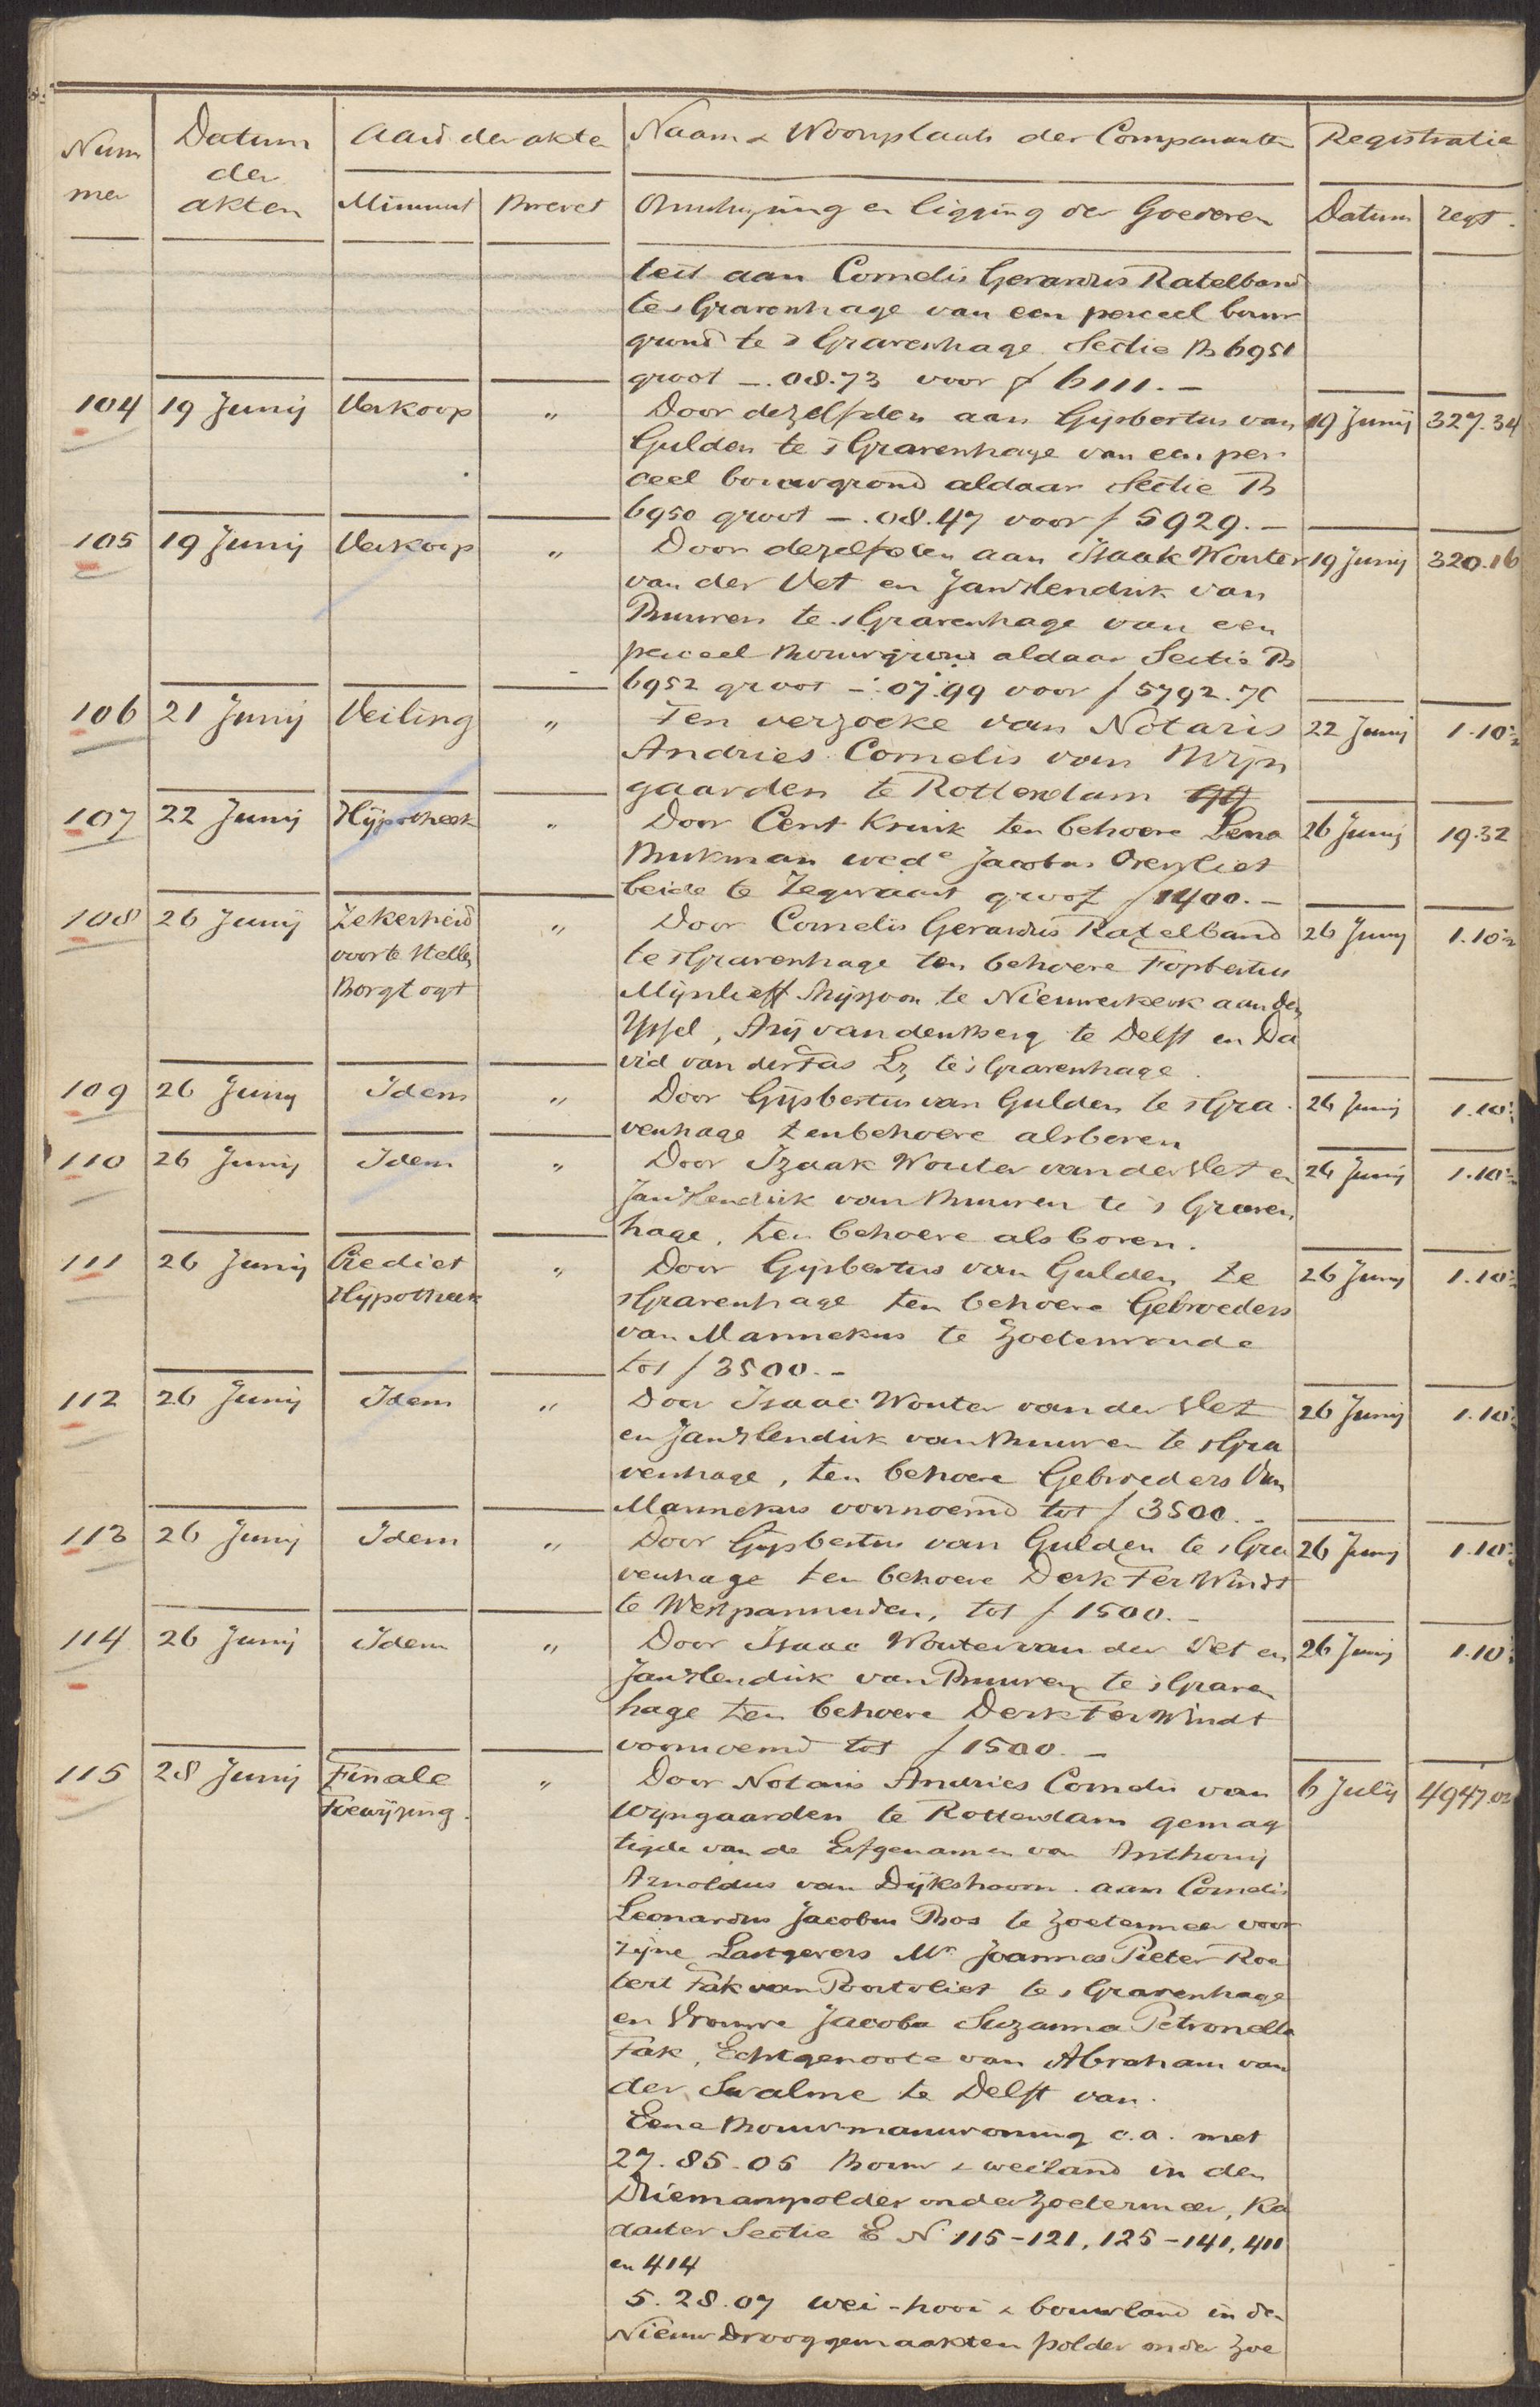 Num
mer
Datum
der
akten
Aard der akte
Minuut
Brevet
Naam & Woonplaats der Comparanten
Omschrijving en ligging der Goederen
Registratie
Datum
regt.
teit aan Cornelis Gerardus Ratelband
te s Gravenhage van een perceel bouw
grond te s Gravenhage Sectie B 6951
groot -. 08.73 voor f 6111.-
104 19 Junij Verkoop " Door dezelfden aan Gijsbertus van 19 Junij 327.34
Gulden te s Gravenhage van een per
ceel bouwgrond aldaar Sectie B
6950 groot -.08.47 voor f 5929.-
105 19 Junij Verkoop " Door dezelfden aan Isaak Wouter 19 Junij 320.16
van der Vet en Jan Hendrik van
Buuren te s Gravenhage van een
perceel Bouwgrond aldaar Sectie B
6952 groot -.07.99 voor f 5792.70
106 21 Junij Veiling " Ten verzoeke van Notaris 22 Junij 1.10½
Andries Cornelis van Wijn
gaarden te Rotterdam
107 22 Junij Hijpotheek " Door Cent Kruik ten behoeve Lena 26 Junij 19.32
Brukman wede Jacobus Overvliet
beide te Zegwaart groot f 1400.-
108 26 Junij Zekerheid " Door Cornelis Gerardus Ratelband 26 Junij 1.10½
voor te stellen te s Gravenhage ten behoeve Fopbertus
Borgtogt Mijnlieff te Nieuwerkerk aan den
Yssel, Arij van den Berg te Delft en Da
vid van der Fas Lz te s Gravenhage.
109 26 Junij Idem " Door Gijsbertus van Gulden te s Gra 26 Junij 1.10½
venhage ten behoeve als boven
110 26 Junij Idem " Door Izaak Wouter van der Vet en 26 Junij 1.10½
Jan Hendrik van Buuren te s Graven
hage, ten behoeve als boven.
111 26 Junij Crediet " Door Gijsbertus van Gulden te 26 Junij 1.10½
Hijpotheek s Gravenhage ten behoeve Gebroeders
van Mannekus te Zoeterwoude
tot f 3500.-
112 26 Junij Idem " Door Isaac Wouter van der Vet 26 Junij 1.10½
en Jan Hendrik van Buuren te s Gra
venhage, ten behoeve Gebroeders Van
Mannekus voornoemd tot f 3500.-
113 26 Junij Idem " Door Gijsbertus van Gulden te s Gra 26 Junij 1.10½
venhage ten behoeve Derk Ter Windt
te Westpannerden, tot f 1500.-
114 26 Junij Idem " Door Isaac Wouter van der Vet en 26 Junij 1.10½
Jan Hendrik van Buuren te s Graven
hage ten behoeve Derk Ter Windt
voornoemd tot f 1500.-
115 28 Junij Finale " Door Notaris Andries Cornelis van 6 Julij 4947.02
Toewijzing. Wijngaarden te Rotterdam gemag
tigde van de Erfgenamen van Anthonij
Arnoldus van Dijkshoorn aan Cornelis
Leonardus Jacobus Bos te Zoetermeer voor
zijne Lastgevers Mr Joannes Pieter Roe
bert Fak van Poortvliet te s Gravenhage
en Vrouwe Jacoba Suzanna Petronella
Fak, Echtgenoote van Abraham van
der Swalme te Delft van.
Eene Bouwmanswoning c.a. met
27.85.05 Bouw & weiland in den
Driemanspolder onder Zoetermeer, Ka
daster Sectie E No 115-121, 125-141, 411
en 414
5.28.07 wei-hooi & bouwland in den
Nieuw Drooggemaakten polder onder Zoe